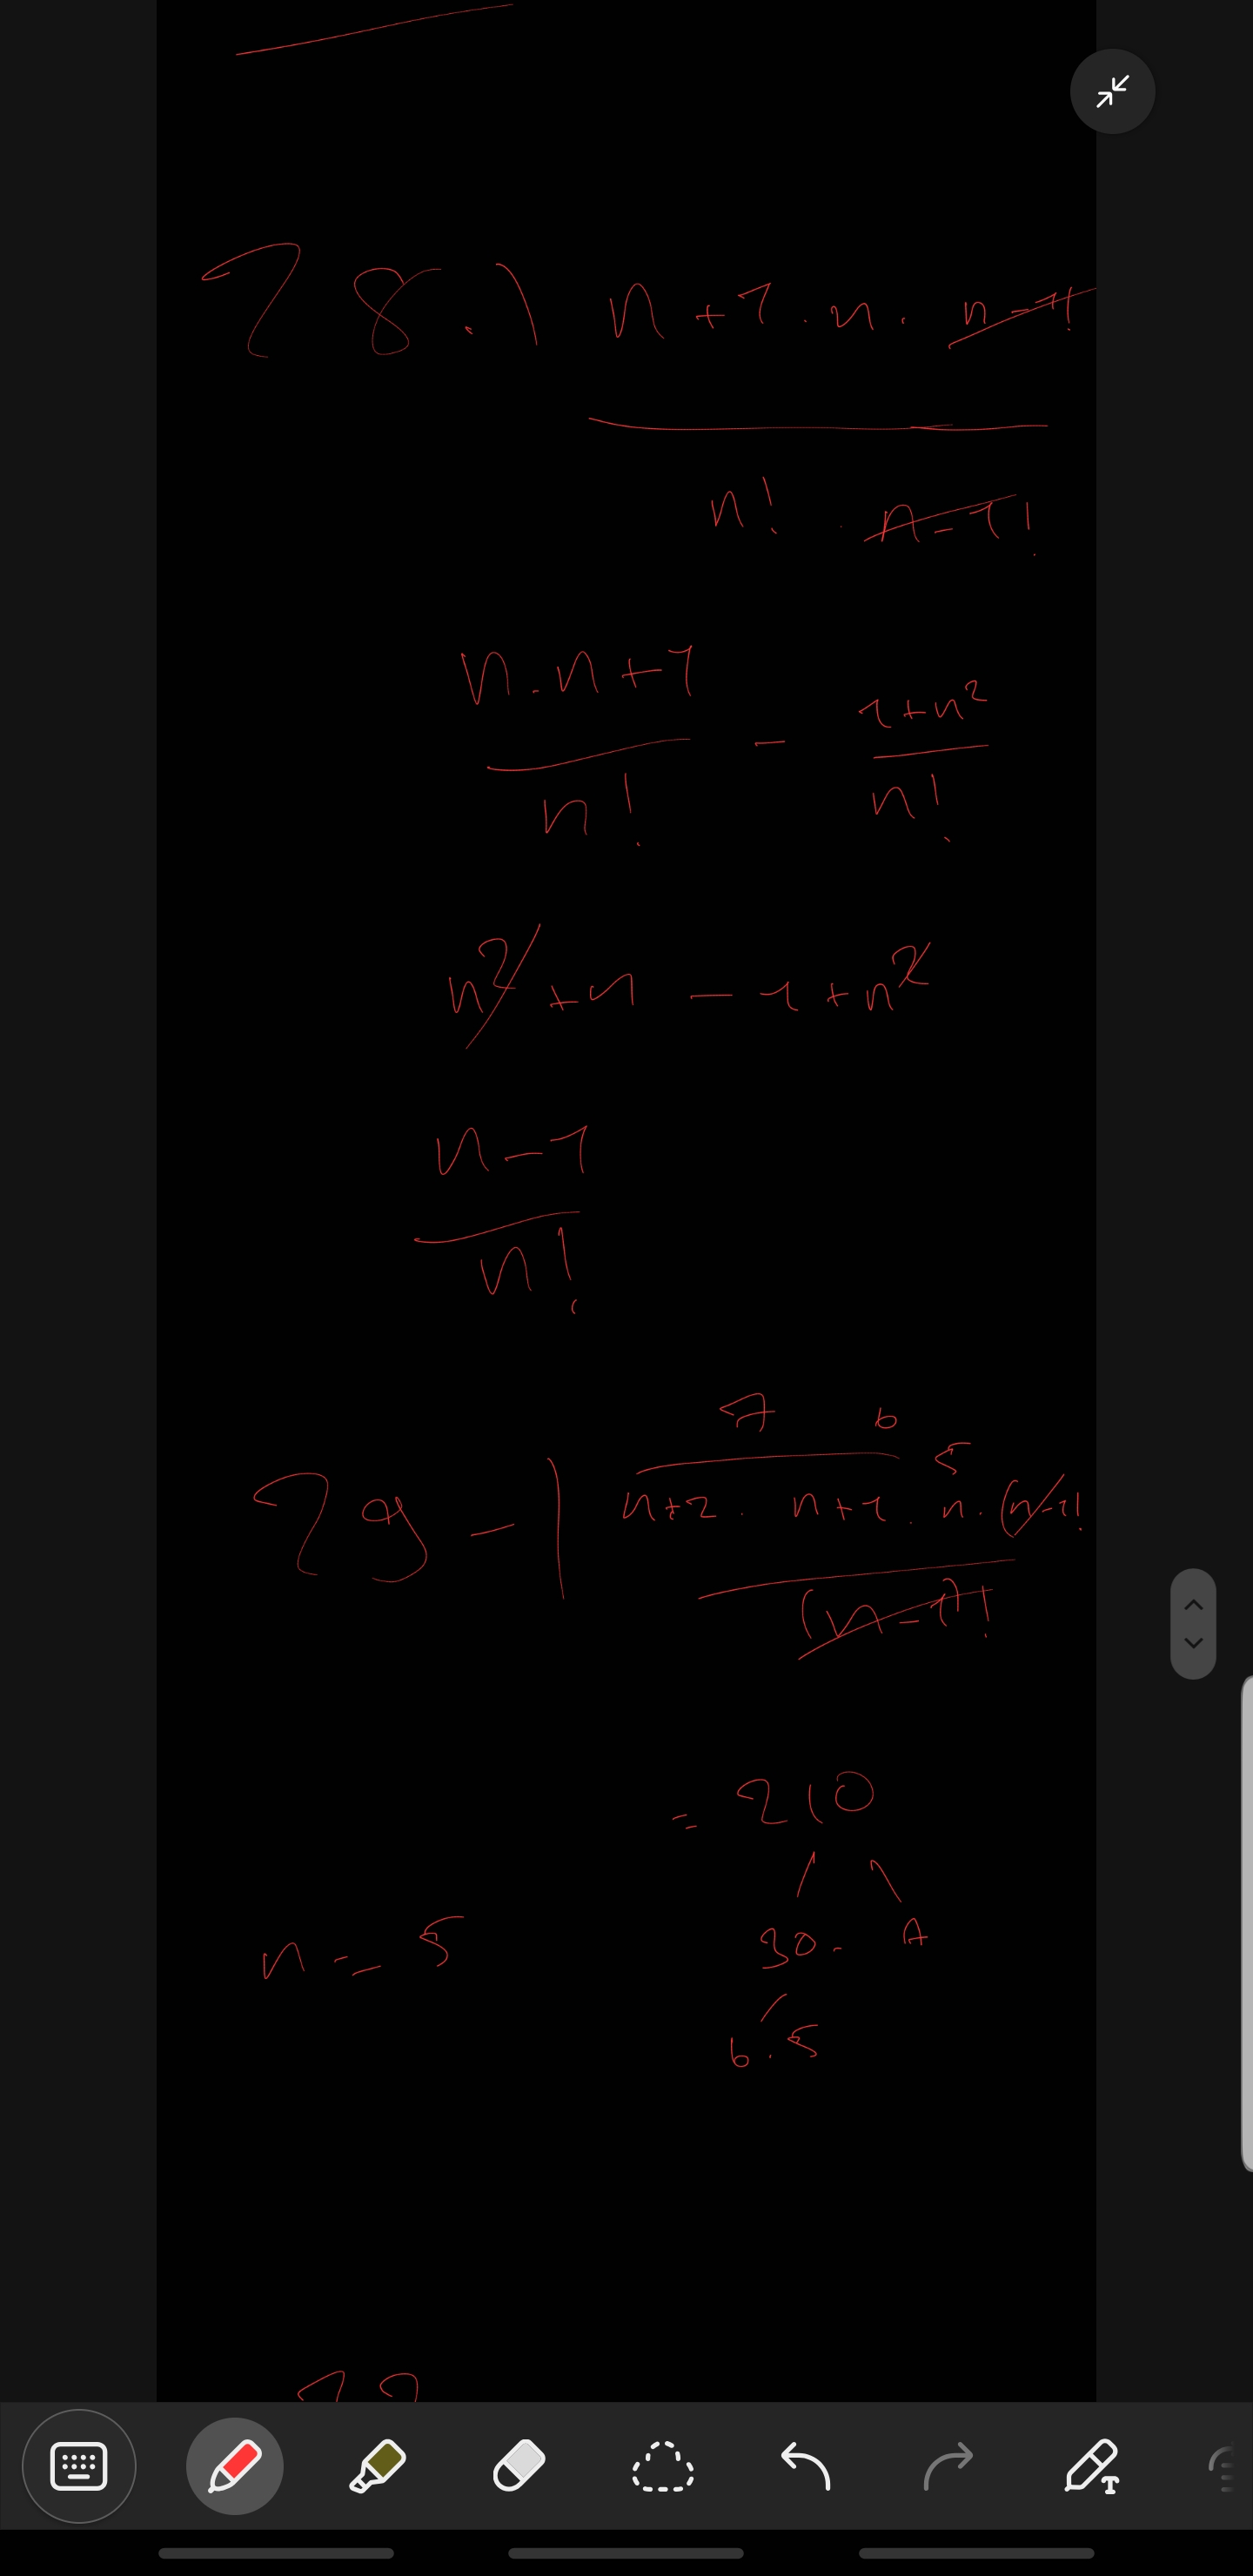 28.) n+1 . n . n-1!
n! . n-1!
n.n+1 - 1+n²
n! n!
n² + n - 1 + n²
n-1
n!
7 6 5
29-) n+2 . n+1 . n . (n-1!
(n-1)!
= 210
30 . 7
n = 5
6 . 5